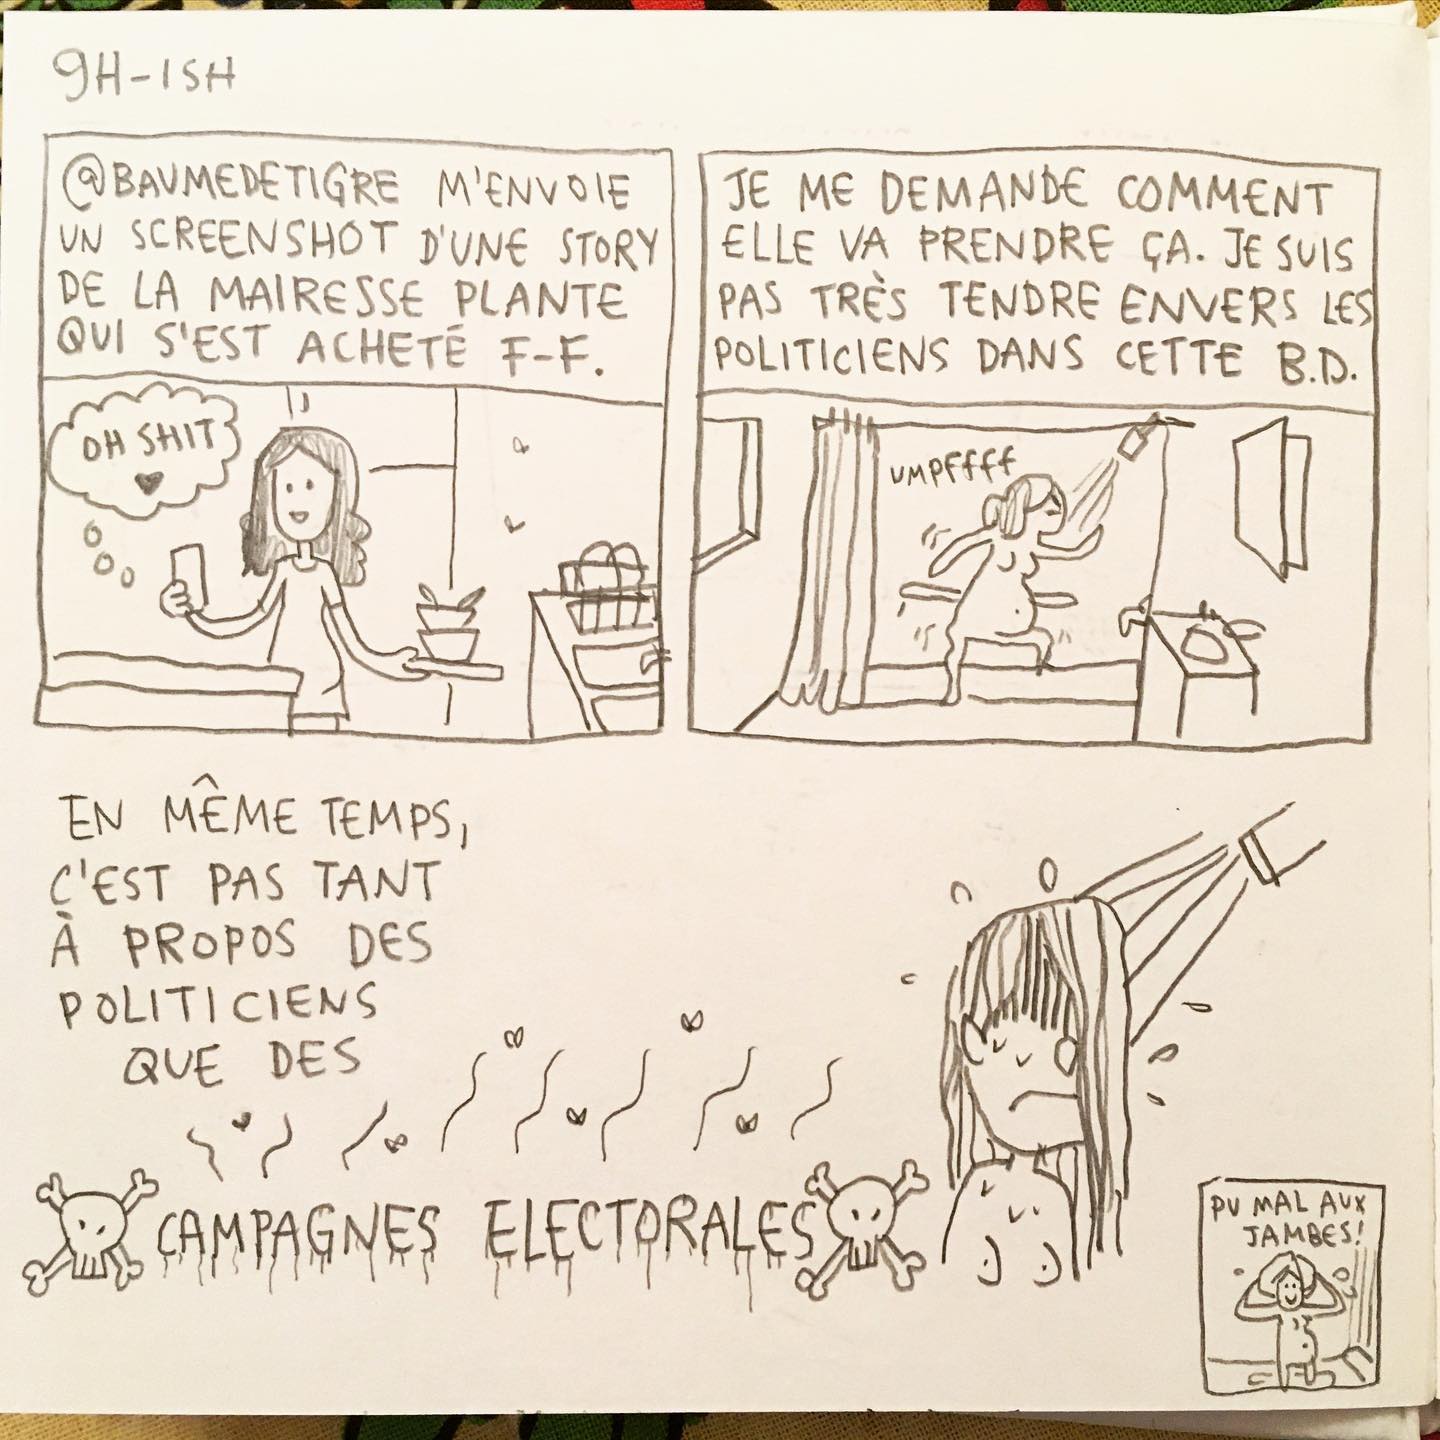 9H-ISH
@BAUMEDETIGRE M'ENVOIE
UN SCREENSHOT D'UNE STORY
DE LA MAIRESSE PLANTE
QUI S'EST ACHETÉ F-F.
OH SHIT
JE ME DEMANDE COMMENT
ELLE VA PRENDRE ÇA. JE SUIS
PAS TRÈS TENDRE ENVERS LES
POLITICIENS DANS CETTE B.D.
UMPFffff
EN MÊME TEMPS,
C'EST PAS TANT
À PROPOS DES
POLITICIENS
QUE DES
CAMPAGNES ELECTORALES
PU MAL AUX
JAMBES!